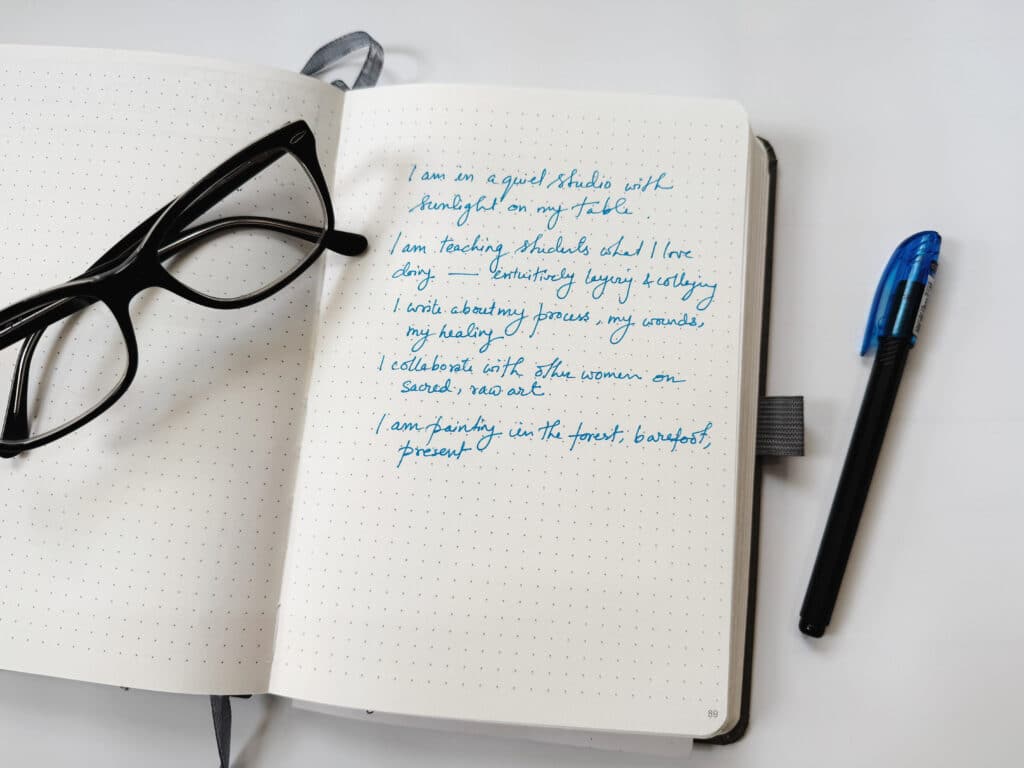 I am in a quiet studio with
sunlight on my table.
I am teaching students what I love
doing — intuitively laying & collaging
I write about my process, my wounds,
my healing
I collaborate with other women on
sacred, raw art.
I am painting in the forest, barefoot,
present
89